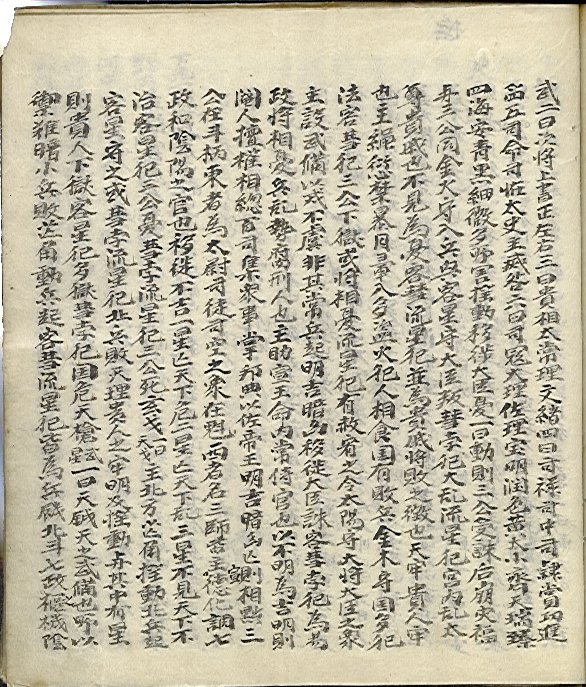 武一曰次將上書正左右三曰貴相太常理文緒四曰司祿司中司隸賞功進
五曰司命司怪太史主滅咎六曰司寇大理佐理宝明潤色黃大小齊天瑞臻
四海安青黑細微多所害搖動移徙大臣憂一曰動則三公受誅后崩火福
守三公同金火守入兵起客星守大臣叛彗孛犯大乱流星犯宮內乱太
尊貴戚也不見為憂客彗流星犯並為貴戚將敗之徵也天牢貴人牢
也主繩愆禁暴月暈入多盜火犯人相食国有敗兵金水守国多犯
法客彗犯三公下獄或將相憂流星犯有赦宥之令太陽守大將大臣之象
主設武備以戒不虞非其常兵起明吉暗凶移徙大臣誅客彗孛犯為易
政將相憂兵乱勢腐刑人也主助宣王命內常侍官也以不明為吉明則
閹人擅權相總百司集衆事掌邦典以佐帝王明吉暗凶亡則相黜三
公在斗柄東者為太尉司徒司空之象在魁西者名三師皆主德化調七
政和陰陽之官也移徙不吉一星亡天下危二星亡天下乱三星不見天下不
治客星犯三公憂彗孛流星犯三公死玄戈一曰天戈主北方芒角搖動北兵起
客星守之或彗孛流星犯北兵敗天理貴人之牢明及搖動与其中有星
則貴人下獄客星犯多獄彗孛犯国危天槍一曰天鉞天之武備也所以
禦難暗小兵敗芒角動兵起客彗流星犯皆為兵饑北斗七政樞機陰